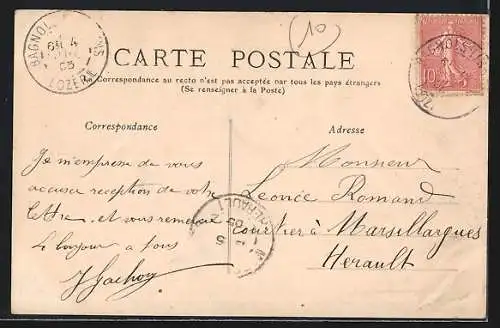 10
CARTE POSTALE
La Correspondance au recto n'est pas acceptée par tous les pays étrangers
(Se renseigner à la Poste)
BAGNOLS
LOZÈRE
10
Correspondance
Adresse
Je m'empresse de vous
accuser reception de votre
lettre. et vous remercie
le bonjour a tous
Monsieur
Leonce Romand
Courtier à Marsillargues
Herault
HÉRAULT